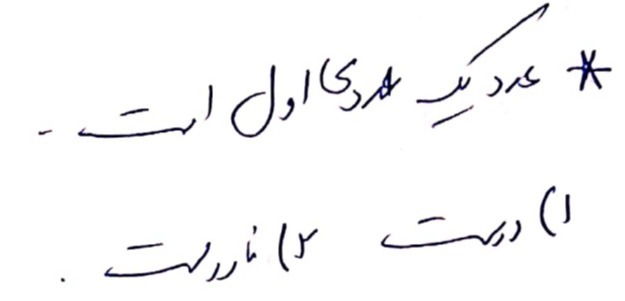 * عدد یک عددی اول است.
۱) درست ۲) نادرست.